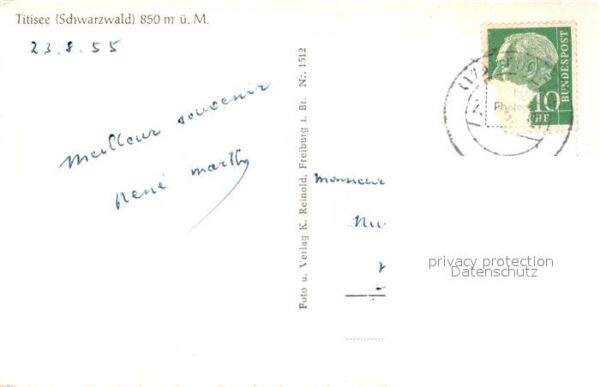 Titisee (Schwarzwald) 850 m ü. M.
23.8.55
meilleur souvenir
rené marthy
Foto u. Verlag K. Reinold, Freiburg i. Br. Nr. 1512
Monsieur
privacy protection
Datenschutz
10
BUNDESPOST